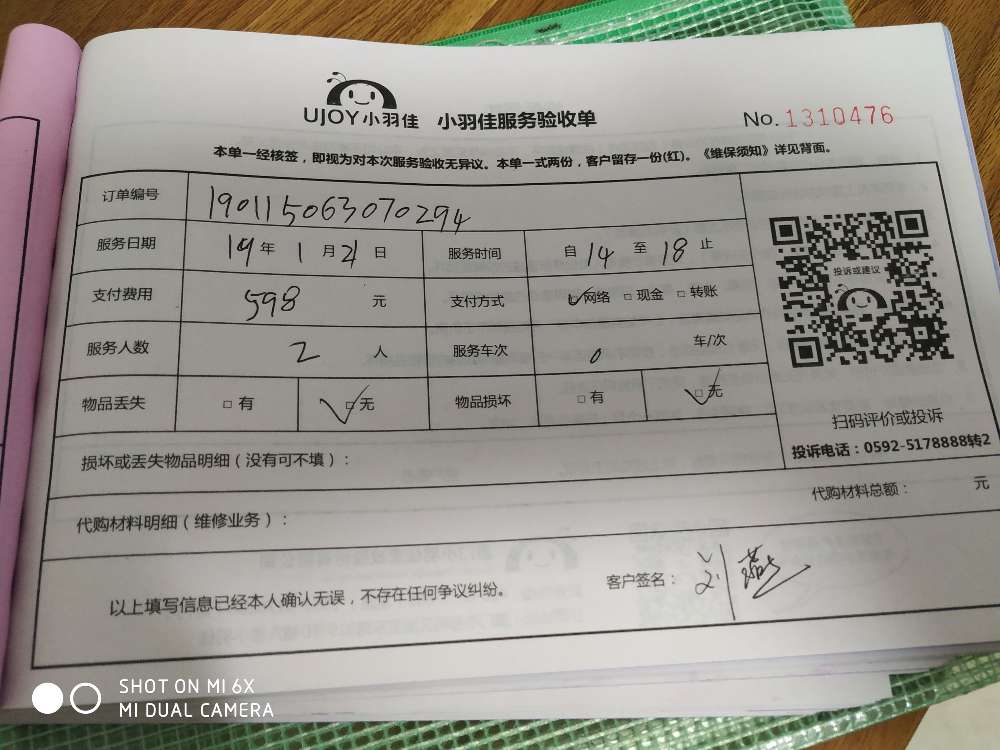 UJOY小羽佳 小羽佳服务验收单 No.1310476
本单一经核签，即视为对本次服务验收无异议。本单一式两份，客户留存一份(红)。《维保须知》详见背面。
订单编号 190115063070294
服务日期 19年1月21日 服务时间 自14至18止
投诉或建议
支付费用 598元 支付方式 ☑网络 □现金 □转账
服务人数 2人 服务车次 0车/次
物品丢失 □有 ☑无 物品损坏 □有 ☑无
扫码评价或投诉
投诉电话：0592-5178888转2
损坏或丢失物品明细（没有可不填）：
代购材料明细（维修业务）： 代购材料总额： 元
以上填写信息已经本人确认无误，不存在任何争议纠纷。 客户签名：刘燕
SHOT ON MI 6X
MI DUAL CAMERA